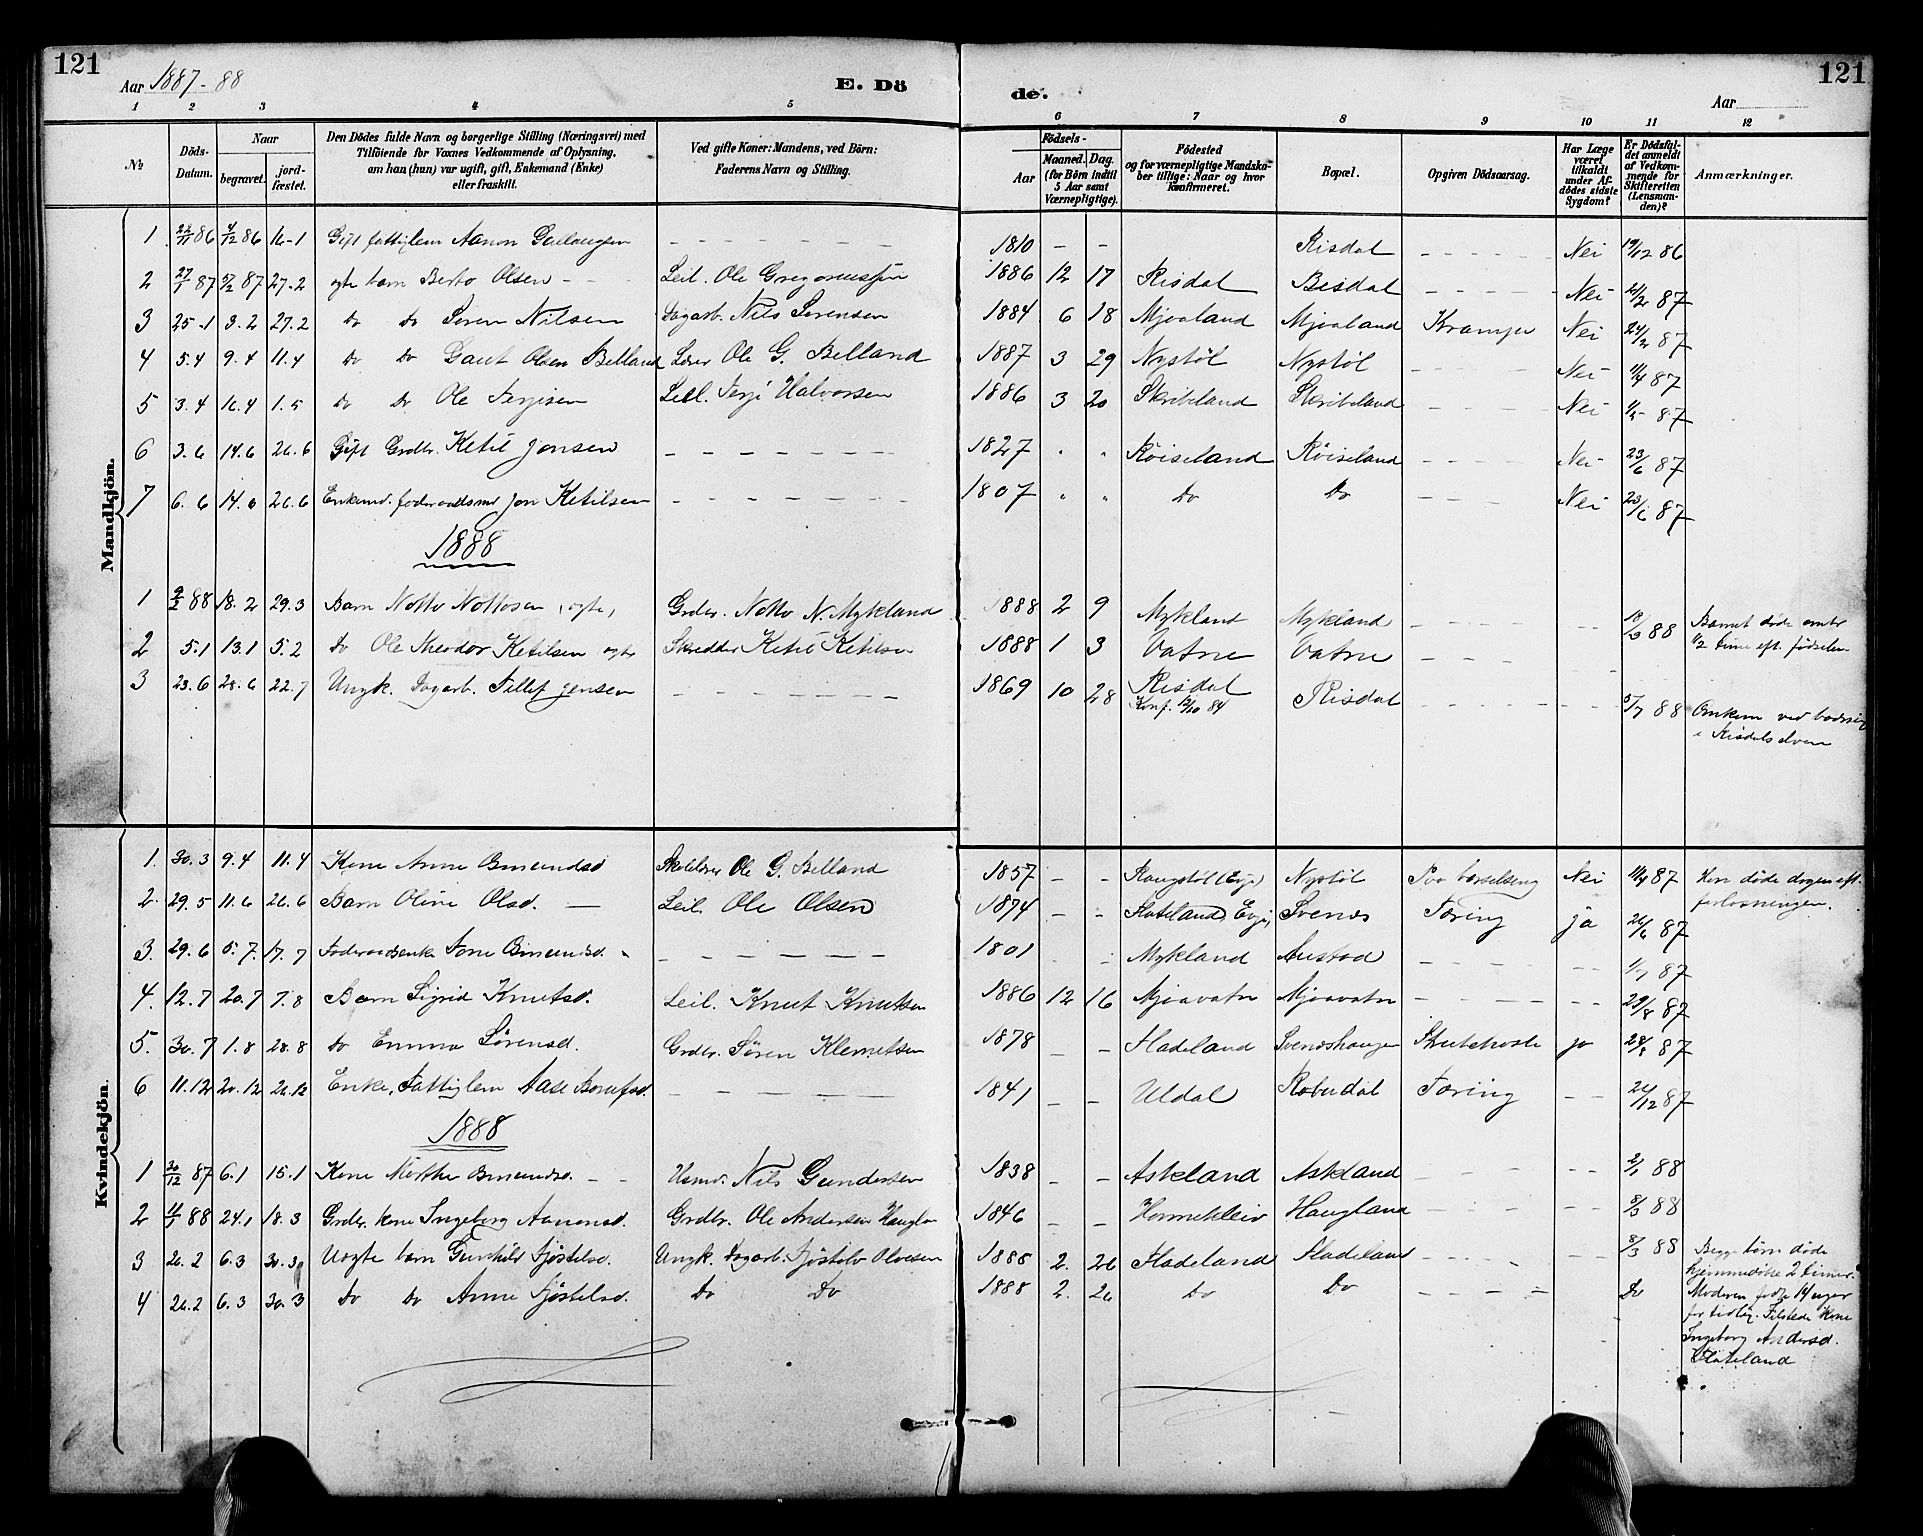 121
Aar 1887-88
E. Dö
de.
Aar
121
1 2 3 4 5 6 7 8 9 10 11 12
№
Döds-Datum.
Naar
begravet.
jord-fæstet.
Den Dödes fulde Navn og borgerlige Stilling (Næringsvei) med
Tilföiende for Voxnes Vedkommende af Oplysning,
om han (hun) var ugift, gift, Enkemand (Enke)
eller fraskilt.
Ved gifte Koner: Mandens, ved Börn:
Faderens Navn og Stilling.
Födsels-
Aar
Maaned. Dag.
(for Börn indtil
5 Aar samt
Værnepligtige).
Födested
og for værnepligtige Mandska-
ber tillige: Naar og hvor
Konfirmeret.
Bopæl.
Opgiven Dödsaarsag.
Har Læge
været
tilkaldt
under Af-
dödes sidste
Sygdom?
Er Dödsfal-
det anmeldt
af Vedkom-
mende for
Skifteretten
(Lensman-
den)?
Anmærkninger.
Mandkjön.
1 22/11 86 4/12 86 16-1 Gift fattiglem Aanon - - - 1810 - - Risdal - - - Nei 19/12 86
2 27/1 87 5/2 87 27-2 ægte barn Berto Olsen - - Leil. Ole Gregoriussen 1886 12 17 Risdal Risdal - - - Nei 21/2 87
3 25-1 3.2 27.2 Do Do Søren Nilsen Dagarb. Nils Sørensen 1884 6 18 Mjaaland Mjaaland Krampe Nei 24/2 87
4 5.4 9.4 11.4 Do Do Gaut Olsen Belland Lærer Ole G. Belland 1887 3 29 Nystöl Nystöl - - - Nei 11/4 87
5 3.4 16.4 1.5 Do Do Ole Terjesen Leil. Terje Halvorsen 1886 3 20 Skribeland Skribeland - - - Nei 1/5 87
6 3.6 14.6 26.6 Gift Grdbr. Ketil Jonsen - - - 1827 " " Røiseland Røiseland - - - Nei 23/6 87
7 6.6 14.6 26.6 Enkemd. føderaadsmd Jon Ketilsen - - - 1807 " " Do Do - - - Nei 23/6 87
1888
1 9/2 88 18.2 29.3 Barn Notto Nottosen (ægte) Grdbr. Notto N. Mykland 1888 2 9 Mykland Mykland - - - 88 Barnet døde omtr
1/2 time eft. fødselen
2 5.1 13.1 5.2 Do Ole Theodor Ketilsen ægte Skrædder Ketil Ketilsen 1888 1 3 Vatne Vatne - - -
3 23.6 28.6 22.7 Ungk. Dagarb. Tellef Jensen - - - 1869 10 28 Risdal Risdal - - - 5/7 88 Omkom ved badning
Konf. 12/10 84
i Risdalselven
Kvindekjön.
1. 30.3 9.4 11.4 Kone Anne Omundsd Skolelærer Ole G. Belland 1857 - - (Evje) Nystöl Paa barselseng Nei 11/4 87 Hun døde dagen eft.
forløsningen.
2. 29.5 11.6 26.6 Barn Oline Olsd. - Leil. Ole Olsen 1874 - - Flateland, Evje, Svenes Tæring ja 26/6 87
3. 29.6 5.7. 17.7 Føderaadsenke Tone Omundsd. - - - 1801 - - Mykland Austad - - - 1/7 87
4. 12.7 20.7 7.8 Barn Sigrid Knutsd. Leil. Knut Knutsen 1886 12 16 Mjaavatn Mjaavatn - - - 29/8 87
5. 30.7 1.8 28.8 Do Emma Sørensd. Grdbr. Søren Klemetsen 1878 - - Fladeland Sveneshaugen Strubehoste ja 28/8 87
6 11.12 20.12 26.12 Enke, Fattiglem Aase - - - 1841 - - Uldal Tæring - - 26/12 87
1888
1 30/12 87 6.1 15.1 Kone Marthe Omundsd. - - Husmd. Nils Gundersen 1838 - - Askland Askland - - - 2/1 88
2 88 24.1 18.3 Grdbr. kone Ingeborg Aanonsd. Grdbr. Ole Andersen Haugland 1846 - - Haugland - - - 8/3 88
3 26.2 6.3 30.3 Uægte barn Gunhild Fjøstelsd. Ungk. Dagarb. Olvesen 1888 2. 26 Fladeland Fladeland - - - 8/3 88 Begge børn døde
hjemmedøbte 2 timer.
4 26.2 6.3 30.3 Do Do Anne Fjøstelsd. Do Do 1888 2. 26 Do Do - - - Do Moderen fødte 14 uger
for tidlig. Tilstede Kone
Ingeborg Andersd.
Flateland